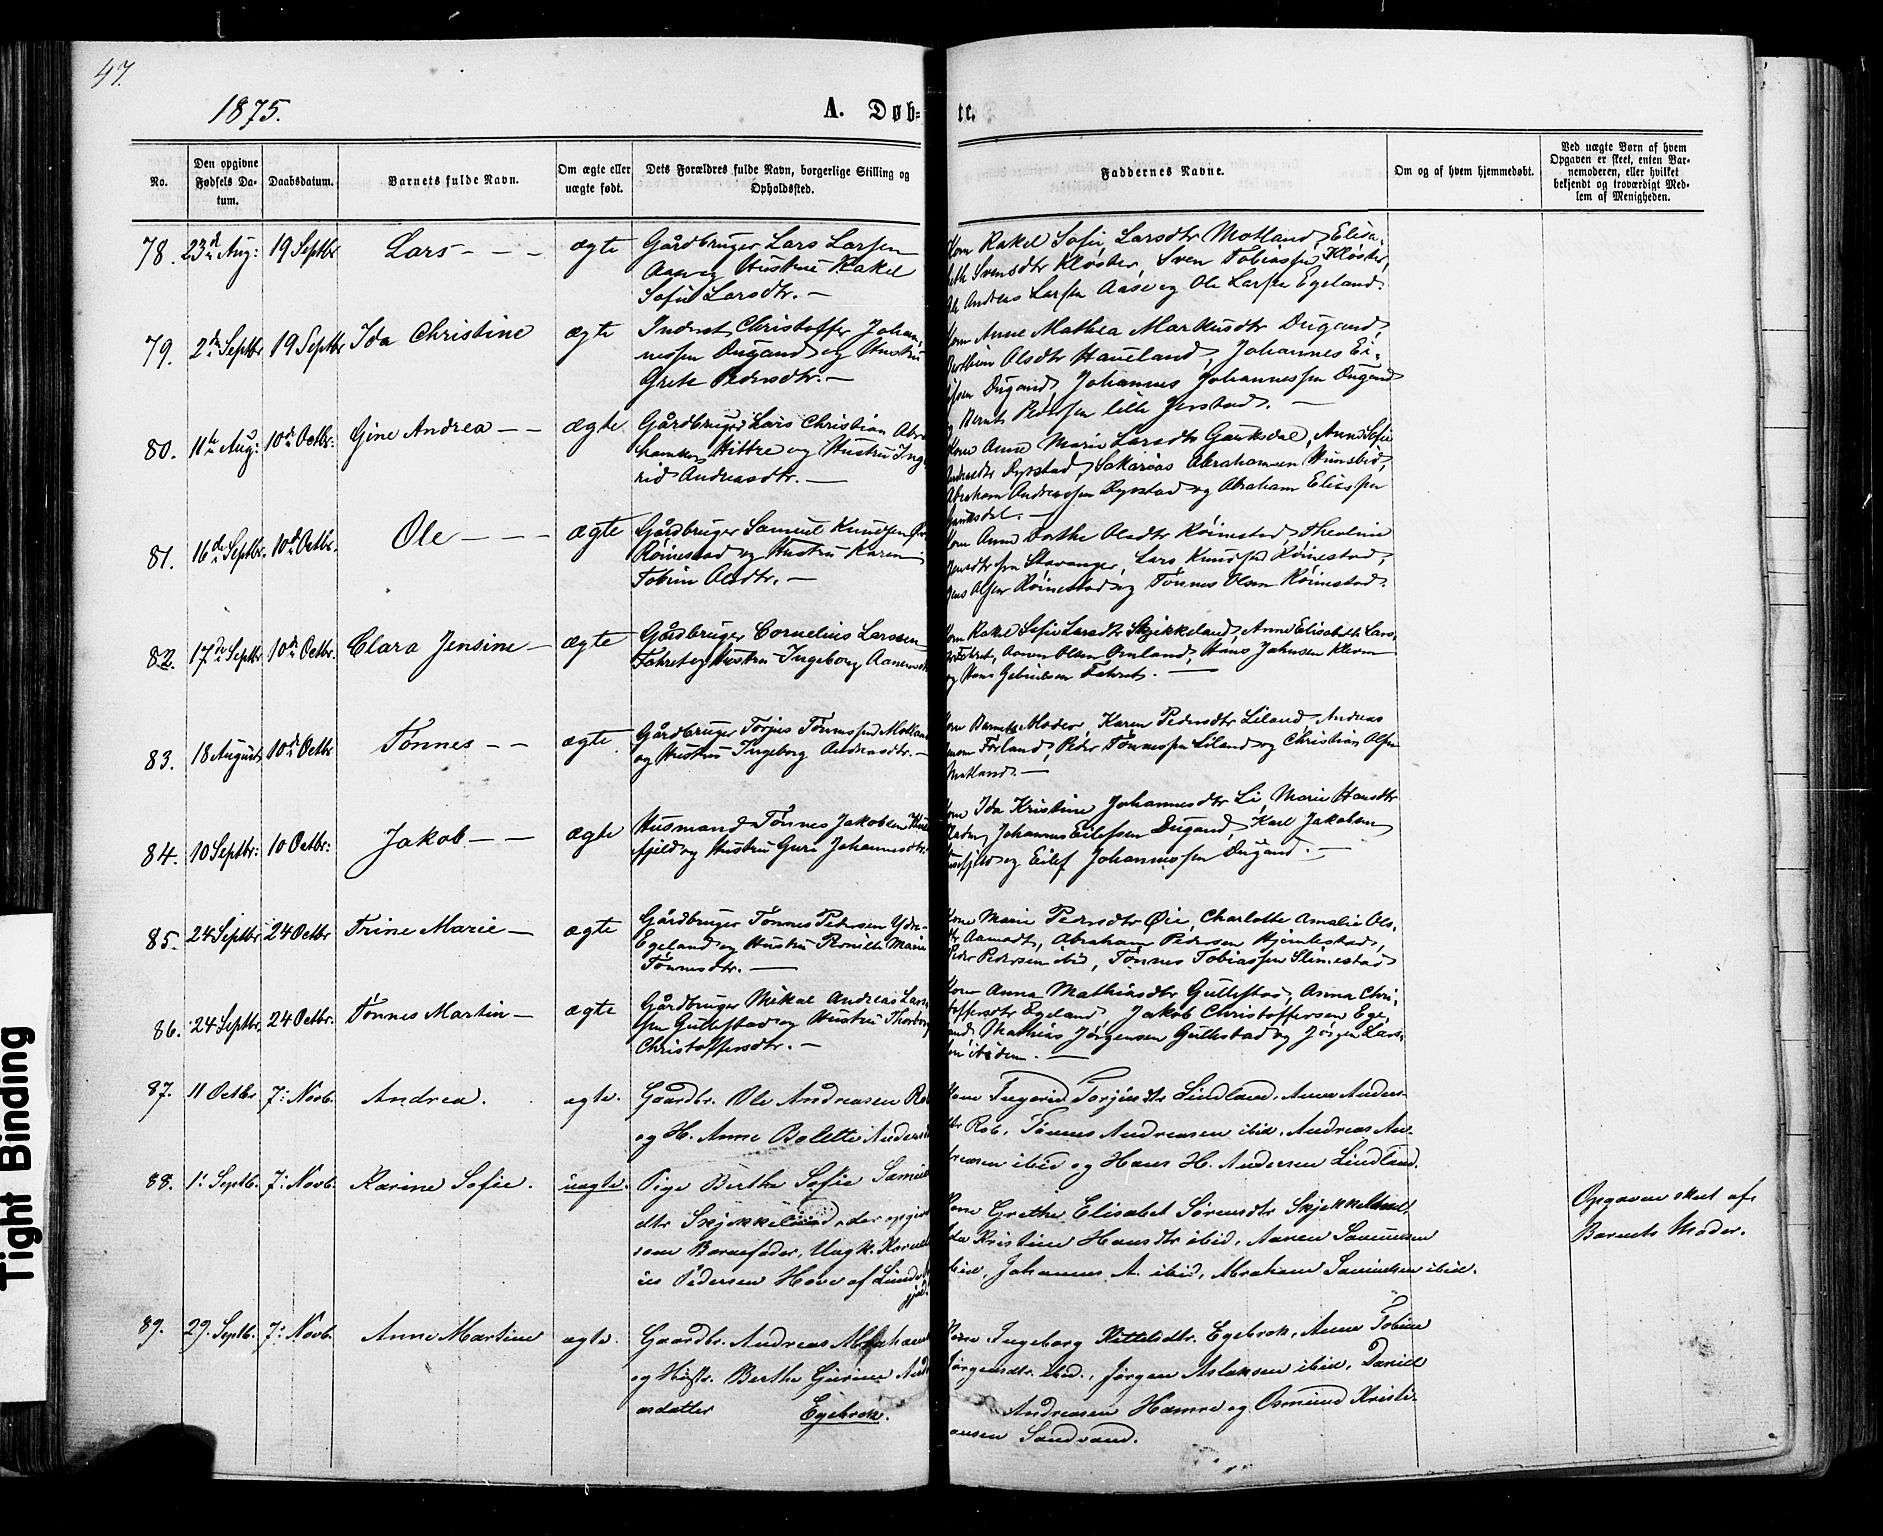 47.
1875.
A. Døb-
te.
No.
Den opgivne Fødsels Da-tum.
Daabsdatum.
Barnets fulde Navn.
Om ægte eller uægte født.
Dets Forældres fulde Navn, borgerlige Stilling og Opholdssted.
Faddernes Navne.
Om og af hvem hjemmedøbt.
Ved uægte Børn af hvem Opgaven er skeet, enten Bar-nemoderen, eller hvilket bekjendt og troværdigt Med-lem af Menigheden.
78. 23de Aug: 19 Septbr Lars - - - ægte
Gårdbruger Lars Larsen
Aase og Hustru Rakel
Sofie Larsdtr. -
Rakel Sofie Larsdtr Motland, Elisa-
beth Svensdtr Kløster, Sven Tobiassen Kløster,
Andreas Larsen Aase og Ole Larsen Egeland.
79. 2den Septbr 19 Septbr Ida Christine ægte
Inderst Christoffer Johan-
nessen Dugand og Hustru
Grete Pedersdtr. -
Anne Mathea Markusdtr Dugand,
Olsdtr Haueland, Johannes Ei-
lefsen Dugand, Johannes Johannessen Dugand
og Bernt Pedersen lille Jerstad. -
80. 11te Aug: 10de Octbr. Gine Andrea - - ægte
Gårdbruger Lars Christian Abra
hamsen Hittre og Hustru Inge
rid Andreasdtr. -
Kone Anne Marie Larsdtr Gauksdal, Anne Sofie
Andreasdtr Dyrstad, Sakarias Abrahamsen Hunsbed,
Abraham Andreassen Dyrstad og Abraham Eliassen
Gauksdal. -
81. 16de Septbr. 10de Octbr. Ole - - - ægte
Gårdbruger Samuel Knudsen
Røinestad og Hustru Karen
Tobine Olsdtr. -
Kone Anne Dorthe Olsdtr Røinestad, Theoline
Jensdtr fra Stavanger, Lars Knudsen Røinestad,
Jens Olsen Røinestad og Tønnes Olsen Røinestad.
82. 17de Septbr 10de Octbr. Clara Jensine - ægte
Gårdbruger Cornelius Larssen
Fahret og Hustru Ingeborg Aanensdtr
Kone Rakel Sofie Larsdtr Skjekkeland, Anne Elisabeth Lars-
dtr Fahret, Aanen Olsen Omland, Hans Johnsen Kleven
og Hans Gabrielsen Fahret. -
83. 18 August 10de Octbr Tønnes - - ægte
Gårdbruger Torjus Tønnessen Motland
og Hustru Ingeborg Andreasdtr. -
Kone Barnets Moder, Karen Pedersdtr Liland, Andreas
Førland, Peder Tønnessen Liland og Christian Olsen
Motland. -
84. 10 Septbr: 10 Octbr: Jakob - - ægte
Husmand Tønnes Jakobsen Huse
fjeld og Hustru Guri Johannesdtr.
Kone Ida Kristine Johannesdtr Li, Marie Hansdtr
Johannes Eilefsen Dugand, Karl Jakobsen
Husefjeld og Eilef Johannessen Dugand. -
85. 24 Septbr 24 Octbr Trine Marie - ægte
Gårdbruger Tønnes Pedersen Ydre-
Egeland og Hustru Pernille Marie
Tønnesdtr. -
Kone Marie Pedersdtr Øie, Charlotte Amalie Ols-
dtr Aamodt, Abraham Pedersen Hjemlestad,
Peder Pedersen ibid, Tønnes Tobiassen Slimestad
86. 24 Septbr. 24 Octbr. Tønnes Martin - ægte
Gårdbruger Mikal Andreas Lar-
sen Gullestad og Hustru Thorborg
Christoffersdtr. -
Kone Anna Mathiasdtr Gullestad, Anna Chri-
stoffersdtr Egeland, Jakob Christoffersen Ege-
land, Mathias Jørgensen Gullestad og Jørgen Lars-
sen ibidem. -
87. 11 Octbr 7: Novb. Andrea. ægte.
Gaardbr. Ole Andreasen Rob
og H. Anne Bolette Anders
Kone Ingerid Torjusdtr Lindland, Anne Anders-
dtr Rob, Tønnes Andreasen ibid, Andreas An-
dreasen ibid og Hans H. Andersen Lindland.
88. 1: Septb. 7: Novb. Karine Sofie. uægte.
Pige Berthe Sofie Samuels
dtr Skjekkeland, der opgiver
som Barnefader, Ungk. Korne
lius Pedersen Have af
gjeld.
Kone Grethe Elisabet Sørensdtr Skjekkeland
Kristine Hansdtr ibid, Aanen Samuelsen
ibid, Johannes A. ibid, Abraham Samuelsen ibid.
Opgaven skeet af
Barnets Moder.
89. 29. Septb. 7: Novb. Anne Martine ægte.
Gaardbr. Andreas Abraham
og Hustr. Berthe Gurine And
easdatter Egebrok.
Kone Ingeborg Kittelsdtr. Egebrok, Anne Tobine
Jørgensdtr. ibid., Jørgen Aslaksen ibid, Daniel
Andreasen Hamre og Osmund Kristi-
ansen Sandvand.
Tight Binding